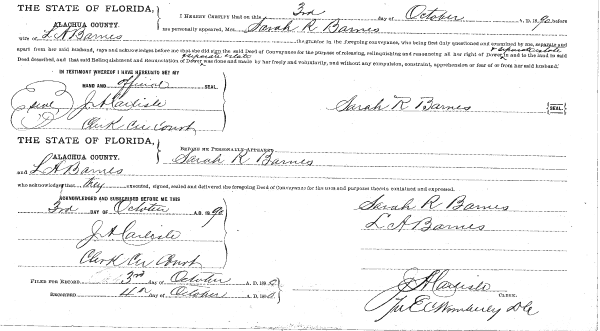 THE STATE OF FLORIDA,
ALACHUA COUNTY.
I HEREBY CERTIFY that on this 3rd day of October A. D. 1890, before
me personally appeared, Mrs. Sarah R Barnes
wife of L A Barnes the grantor in the foregoing conveyance, who being first duly questioned and examined by me, separate and
apart from her said husband, says and acknowledges before me that she did sign the said Deed of Conveyance for the purpose of releasing, relinquishing and renouncing all her right of Dower & separate estate in and to the land in said
Deed described, and that said Relinquishment and Renunciation of Dower & separate estate was done and made by her freely and voluntarily, and without any compulsion, constraint, apprehension or fear of or from her said husband.
IN TESTIMONY WHEREOF I HAVE HEREUNTO SET MY
HAND AND official SEAL.
seal
J A Carlisle
Clerk Cir Court
Sarah R Barnes SEAL
THE STATE OF FLORIDA,
ALACHUA COUNTY.
BEFORE ME PERSONALLY APPEARED
Sarah R Barnes
and L A Barnes
who acknowledged that they executed, signed, sealed and delivered the foregoing Deed of Conveyance for the uses and purposes therein contained and expressed.
ACKNOWLEDGED AND SUBSCRIBED BEFORE ME THIS
3rd DAY OF October A. D. 1890
Sarah R Barnes
L A Barnes
J A Carlisle
Clerk Cir Court
FILED FOR RECORD 3rd day of October A. D. 1890
RECORDED 4th day of October A. D. 1890
J A Carlisle
CLERK.
Per E C Wimberley D C